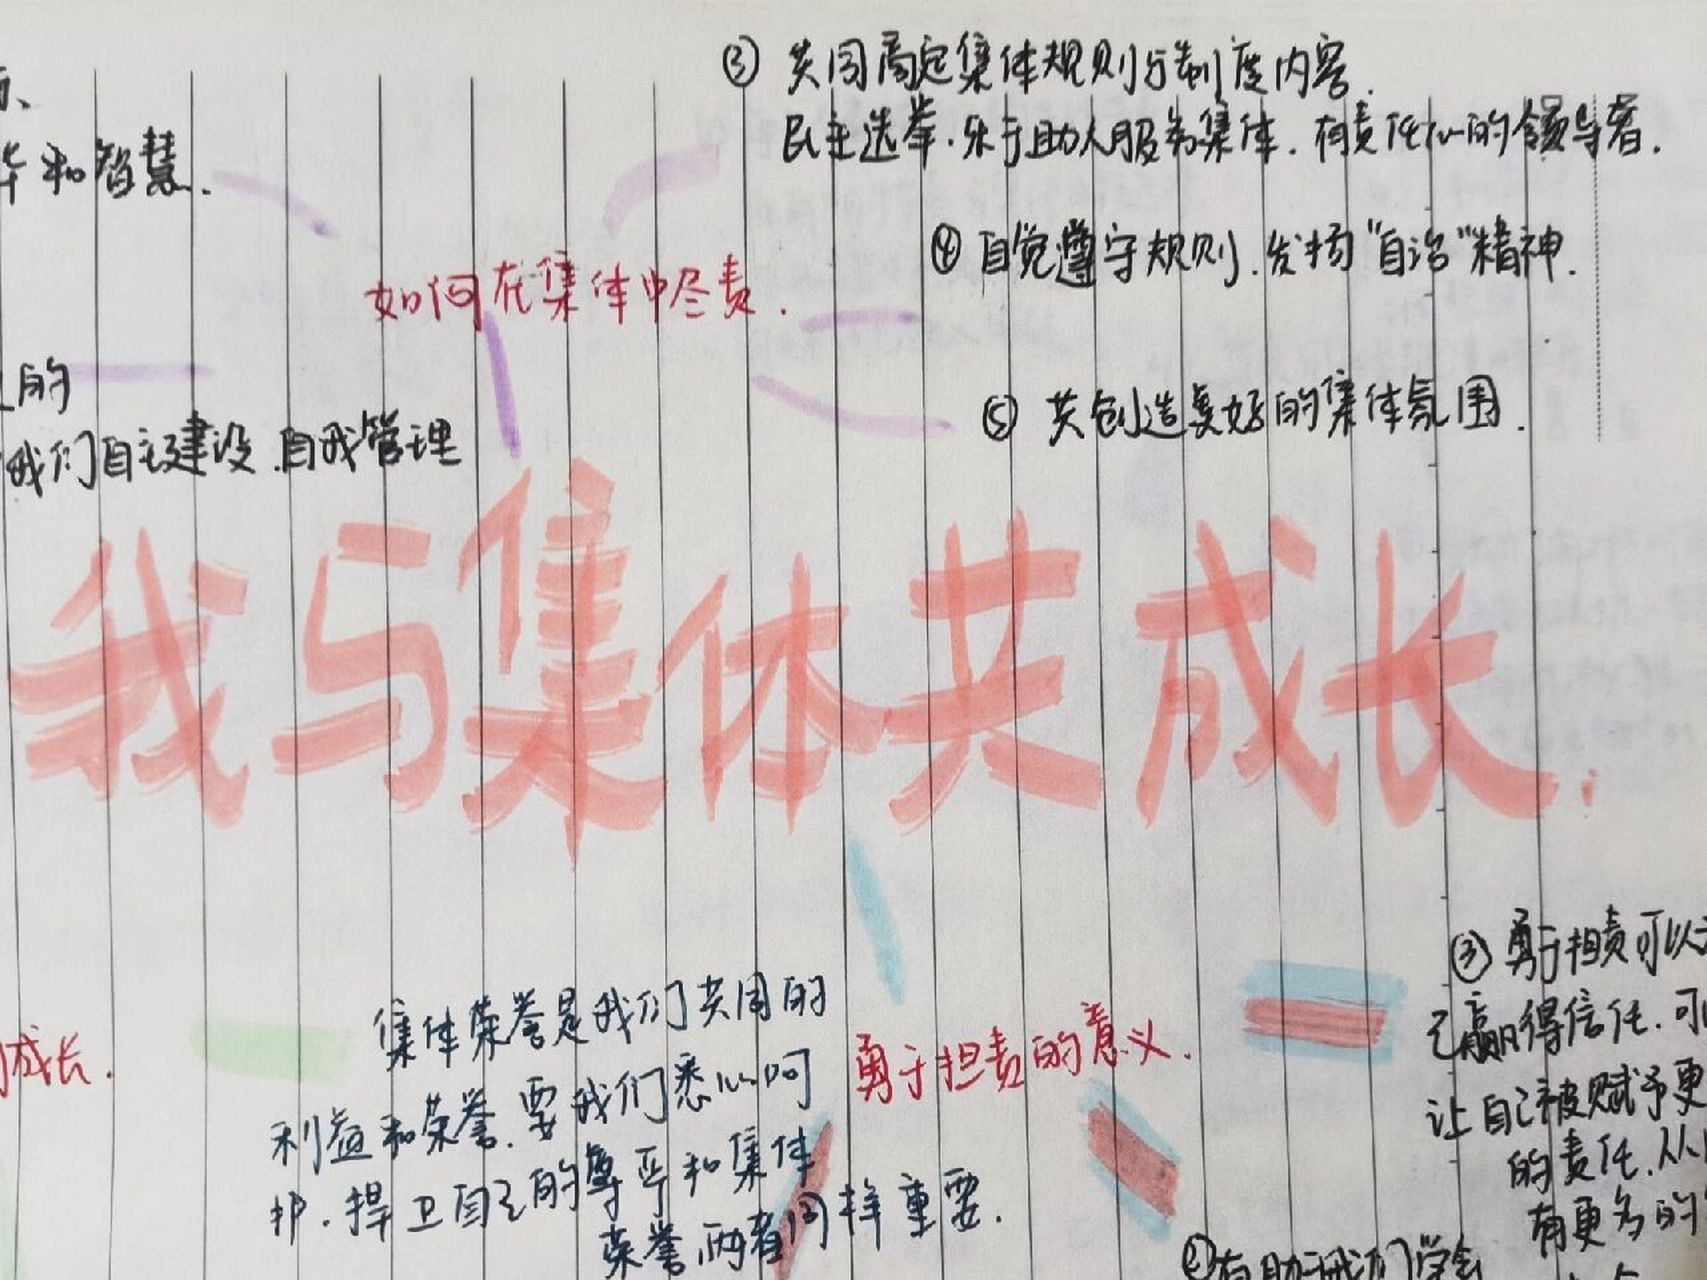 ③ 共同商定集体规则与制度内容.
民主选举.乐于助人服务集体.有责任心的领导者.
和智慧.
④ 自觉遵守规则.发扬"自治"精神.
如何在集体中尽责.
的
我们自主建设.自我管理
⑤ 共创造美好的集体氛围.
我与集体共成长.
集体荣誉是我们共同的
利益和荣誉.要我们悉心呵
护.捍卫自己的尊严和集体
荣誉两者同样重要.
成长.
勇于担责的意义.
③ 勇于担责可以
己赢得信任.可
让自己被赋予更
的责任.从
有更多的
②有助于我们学会